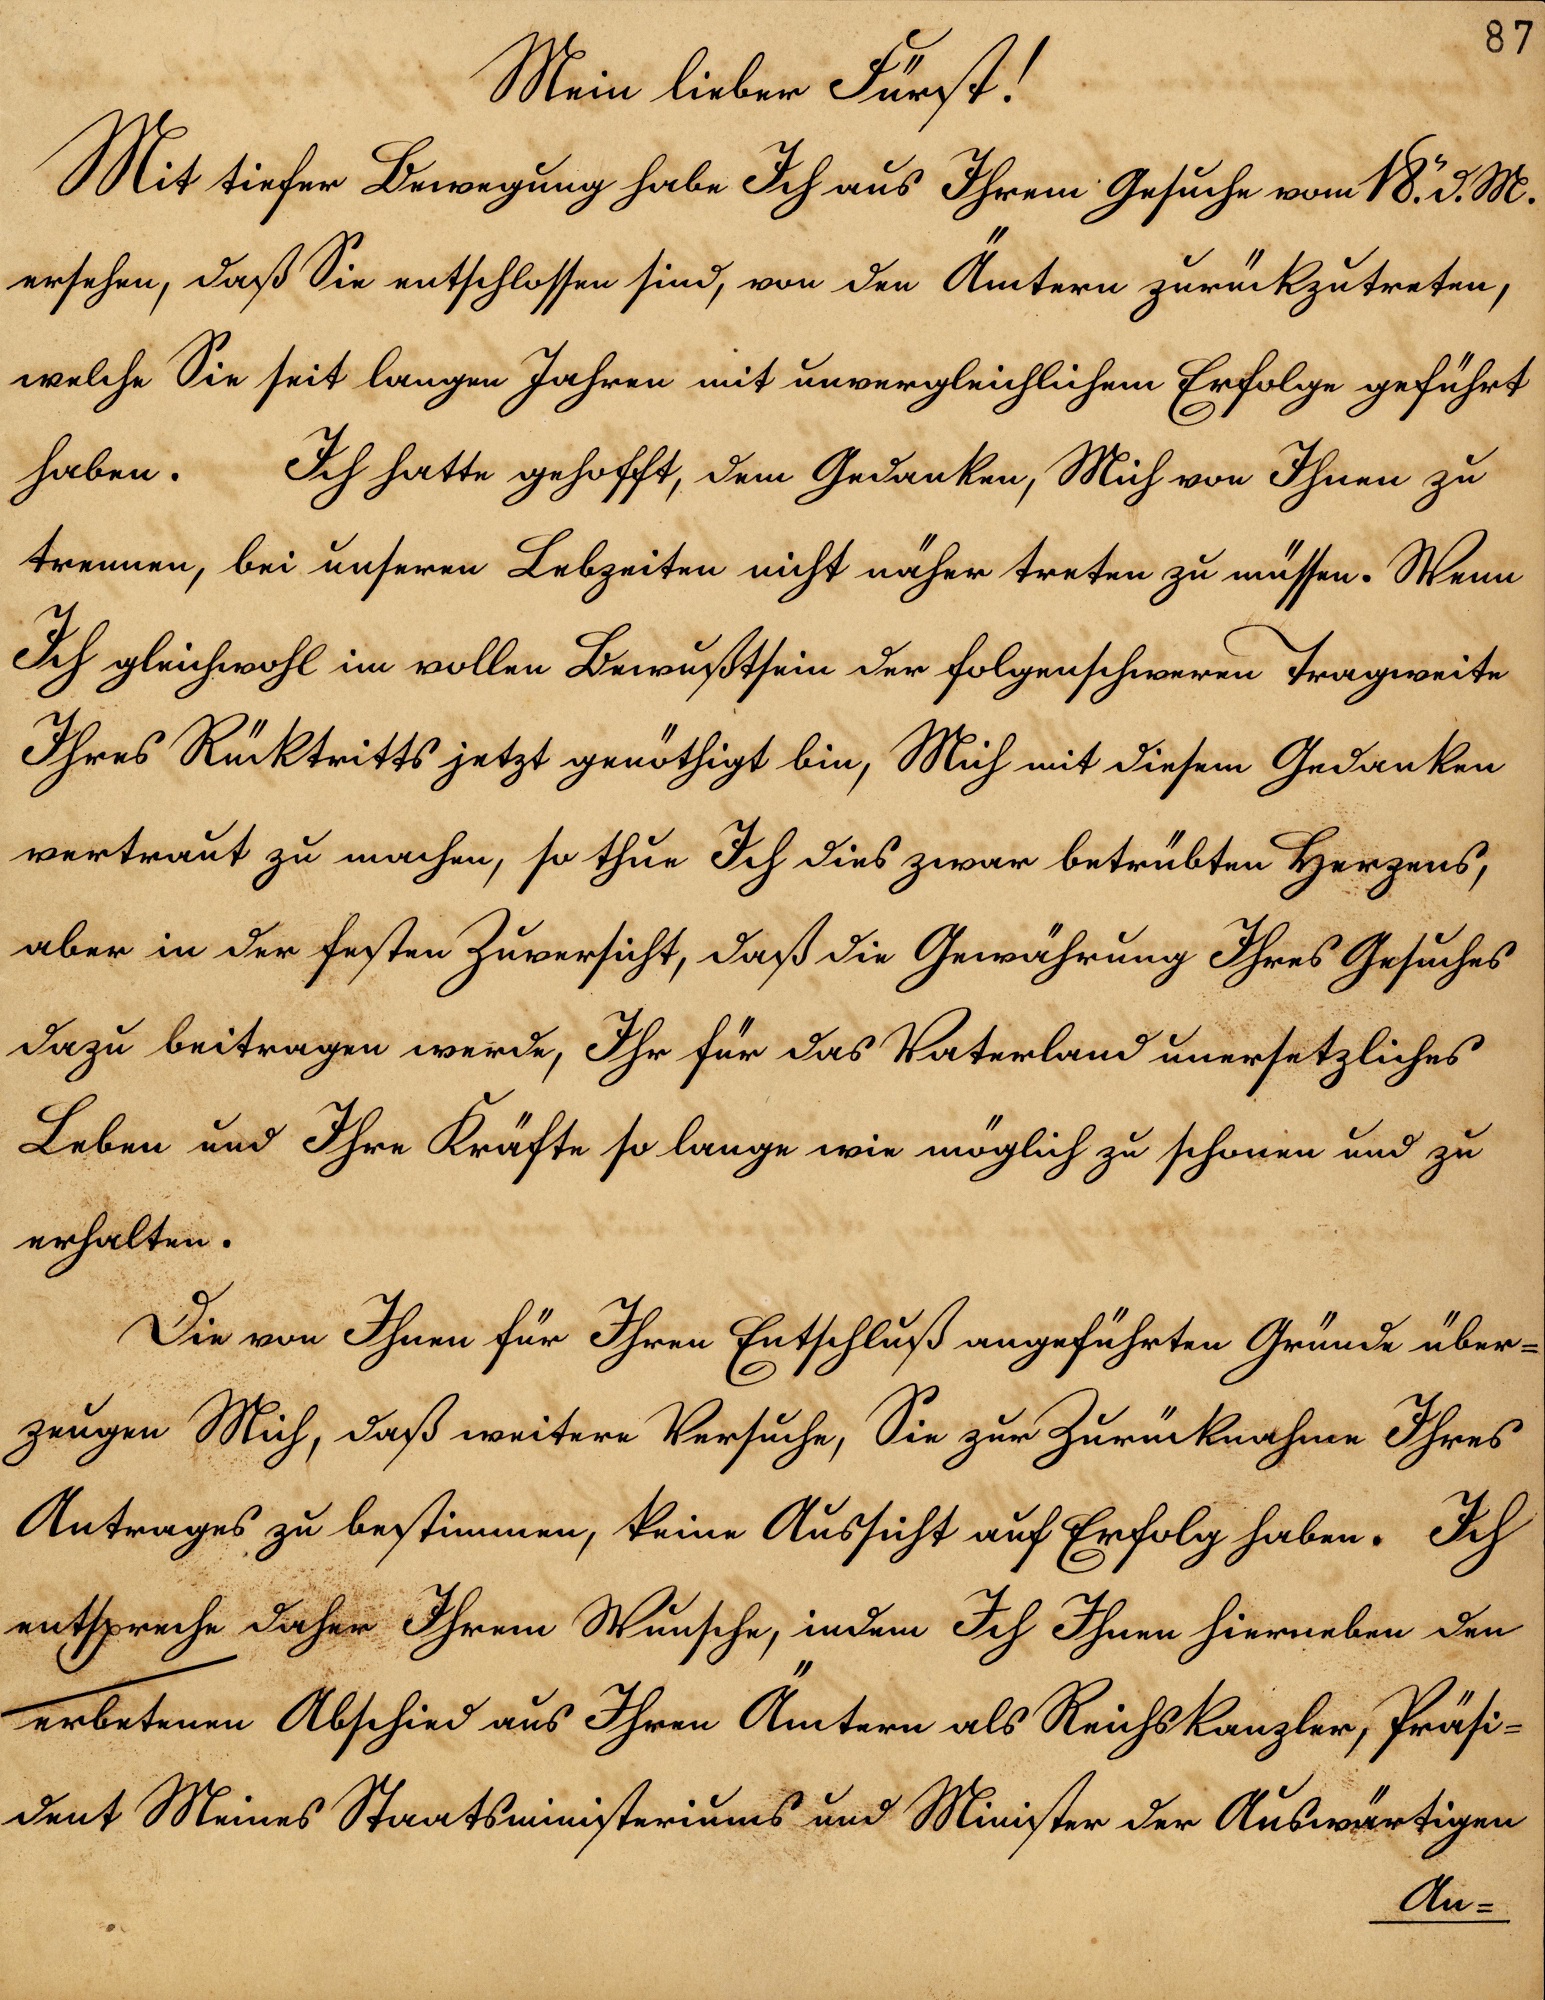 87
Mein lieber Fürst!
Mit tiefer Bewegung habe Ich aus Ihrem Gesuche vom 18. d. M.
ersehen, daß Sie entschlossen sind, von den Ämtern zurückzutreten,
welche Sie seit langen Jahren mit unvergleichlichem Erfolge geführt
haben. Ich hatte gehofft, dem Gedanken, Mich von Ihnen zu
trennen, bei unseren Lebzeiten nicht näher treten zu müssen. Wenn
Ich gleichwohl im vollen Bewußtsein der folgenschweren Tragweite
Ihres Rücktritts jetzt genöthigt bin, Mich mit diesem Gedanken
vertraut zu machen, so thue Ich dies zwar betrübten Herzens,
aber in der festen Zuversicht, daß die Gewährung Ihres Gesuches
dazu beitragen werde, Ihr für das Vaterland unersetzliches
Leben und Ihre Kräfte so lange wie möglich zu schonen und zu
erhalten.
Die von Ihnen für Ihren Entschluß angeführten Gründe über=
zeugen Mich, daß weitere Versuche, Sie zur Zurücknahme Ihres
Antrages zu bestimmen, keine Aussicht auf Erfolg haben. Ich
entspreche daher Ihrem Wunsche, indem Ich Ihnen hierneben den
erbetenen Abschied aus Ihren Ämtern als Reichskanzler, Präsi=
dent Meines Staatsministeriums und Minister der Auswärtigen
An=